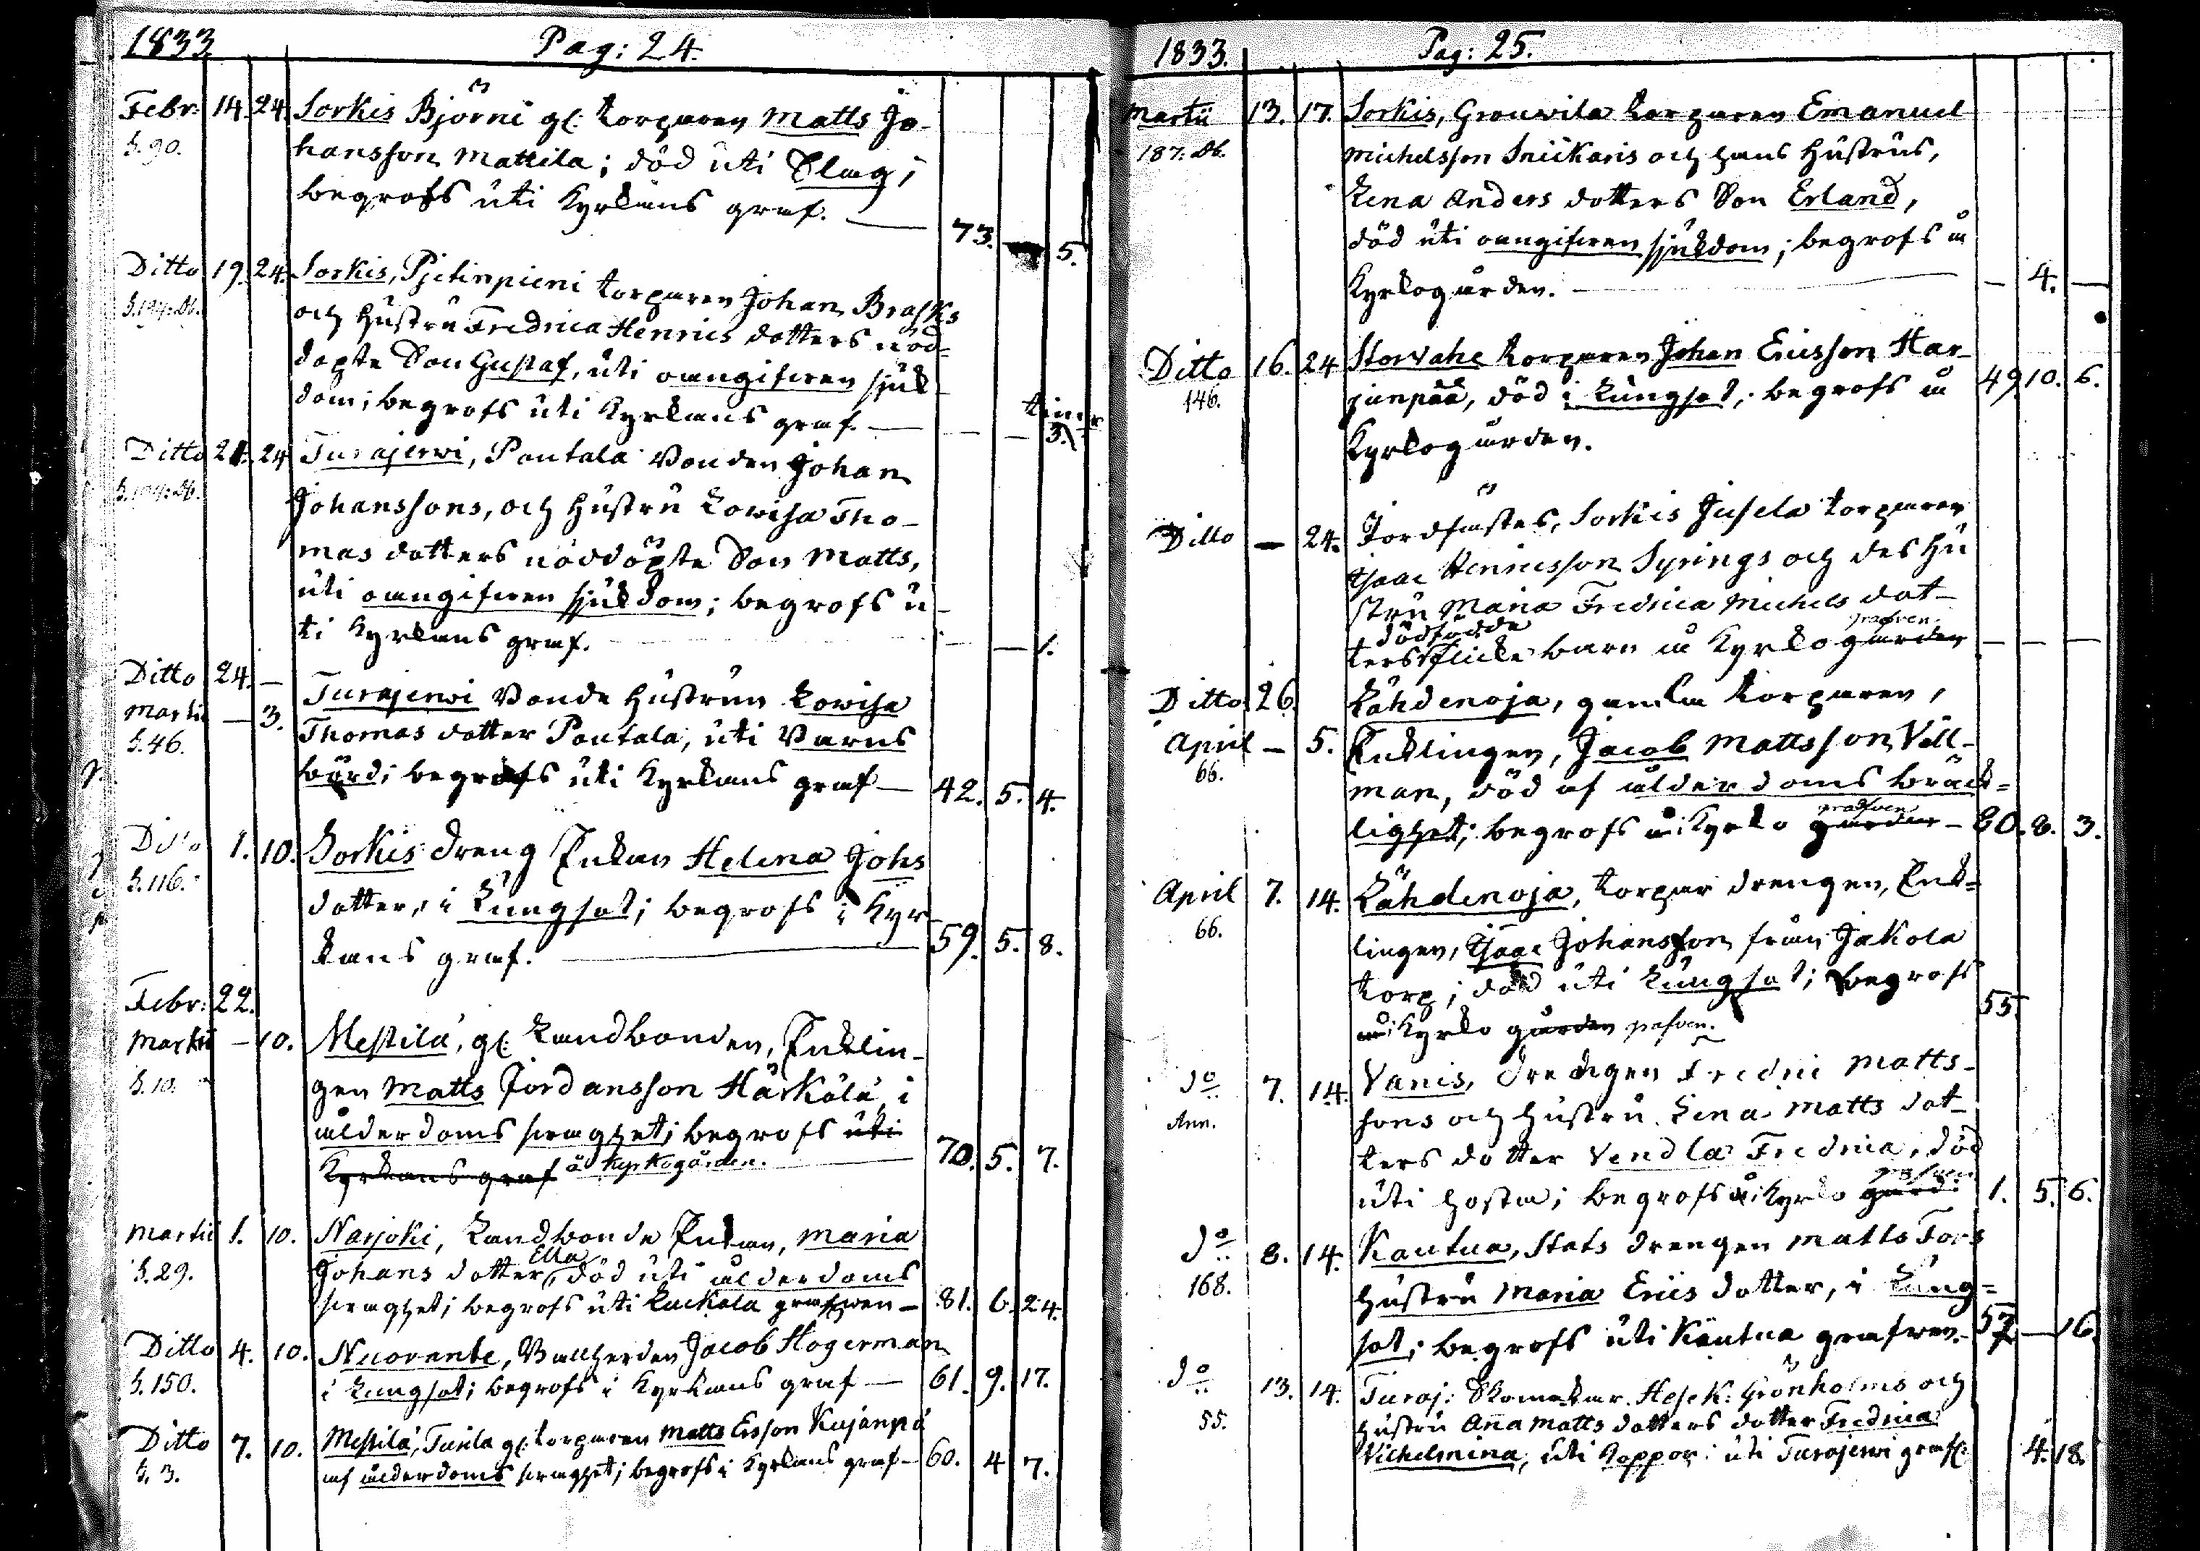 1833 Pag: 24.
Febr: 14. 24. Sorkis Björni gl: torparen Matts Jo-
S. 90. hansson Mattila; död uti Slag;
begrofs uti Kyrkans graf. — 73. 5.
Ditto 19. 24. Sorkis, Pjetinpieni torparen Johan Brasks
och Hustru Fredrica Henrics dotters nöd-
döpte Son Gustaf, uti oangifwen sjuk-
dom; begrofs uti Kyrkans graf. — 3.
Ditto 21. 24. Turajerwi, Pantala Bonden Johan
Johanssons, och Hustru Lowisa Tho-
mas dotters nöddöpte Son Matts,
uti oangifwen sjukdom; begrofs u-
ti Kyrkans graf. — — 1.
Ditto 24. — Turajerwi Bonde Hustrun Lowisa
Martii — 3. Thomas dotter Pantala, uti Barns
S. 46. börd; begrofs uti Kyrkans graf — 42. 5. 4.
Dito 1. 10. Sorkis dreng Enkan Helena Johs
S. 116. dotter, i Lungsot; begrofs i Kyr
kans graf. — 59. 5. 8.
Febr: 22.
Martii — 10. Mestilä, gl: Landbonden, Enklin-
S. 10. gen Matts Jordansson Härkälä, i
ålderdoms swaghet; begrofs uti
Kyrkans graf å Kyrkogården. 70. 5. 7.
Martii 1. 10. Narjoki, Landbonde Enkan, Maria
S. 29. Johans dotter Ella, död uti ålderdoms
swaghet; begrofs uti Luckola grafwen — 81. 6. 24.
Ditto 4. 10. Nuoranbe, Vallherden Jacob Hogerman
S. 150. i Lungsot; begrofs i Kyrkans graf — 61. 9. 17.
Ditto 7. 10. Mestilä, Tuula gl: torparen Matts Ersson Kujanpä
S. 3. af ålderdoms swaghet; begrofs i Kyrkans graf — 60. 4 7.
1833. Pag: 25.
Martii 13. 17. Sorkis, Grouwila torparen Emanuel
187. Db. Michelsson Snickaris och hans Hustrus,
Lena Anders dotters Son Erland,
död uti oangifwen sjukdom; begrofs å
Kyrkogården. — — 4. —
Ditto 16. 24 Storvahe torparen Johan Ericsson Har-
146. junpää, död i Lungsot; begrofs å 49. 10. 6.
Kyrkogården.
Ditto — 24. Jordfästes, Sorkis Jusela torparen
Isaac Henricsson Syrings och des Hu
stru Maria Fredrica Michels dot-
ters dödfödde Flicke barn å Kyrko gården grafven. — — —
Ditto 26. Lähdenoja, gamla torparen,
April — 5. Enklingen, Jacob Mattsson Väll-
66. man, död af ålderdoms bräck-
lighet; begrofs å i Kyrko gården grafven — 80. 8. 3.
April 7. 14. Lähdenoja, torpar drengen, Enk-
66. lingen, Isaac Johansson från Jakola
torp; död uti Lungsot; begrofs 55.
å i Kyrko gården grafven.
do 7. 14. Vanis, drengen Fredric Matts-
Ann. sons och Hustru Lena Matts dot-
ters dotter Vendla Fredrica, död
uti Hosta; begrofs å i Kyrko gård: grafven 1. 5. 6.
do 8. 14. Kautua, Stats drengen Matts Fors
168. Hustru Maria Erics dotter, i Lung-
sot; begrofs uti Kautua grafwen. 57 — 16.
do 13. 14. Turaj: Skomakar. Hesek: Grönholms och
55. Hustru Anna Matts dotters dotter Fredrica
Vilhelmina, uti Koppor; uti Turajerwi graf: 4. 18.